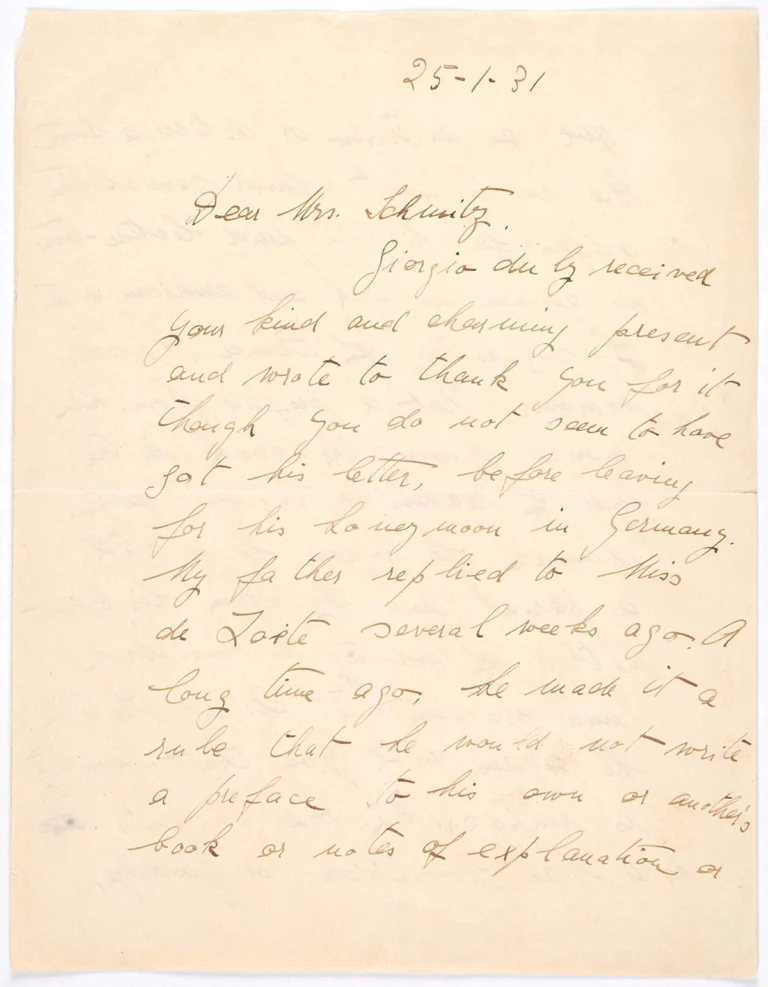 25-1-31
Dear Mrs. Schmitz,
Giorgio duly received
your kind and charming present
and wrote to thank you for it
though you do not seem to have
got his letter, before leaving
for his honeymoon in Germany.
My father replied to Miss
de Zoete several weeks ago. A
long time ago, he made it a
rule that he would not write
a preface to his own or another's
book or notes of explanation or